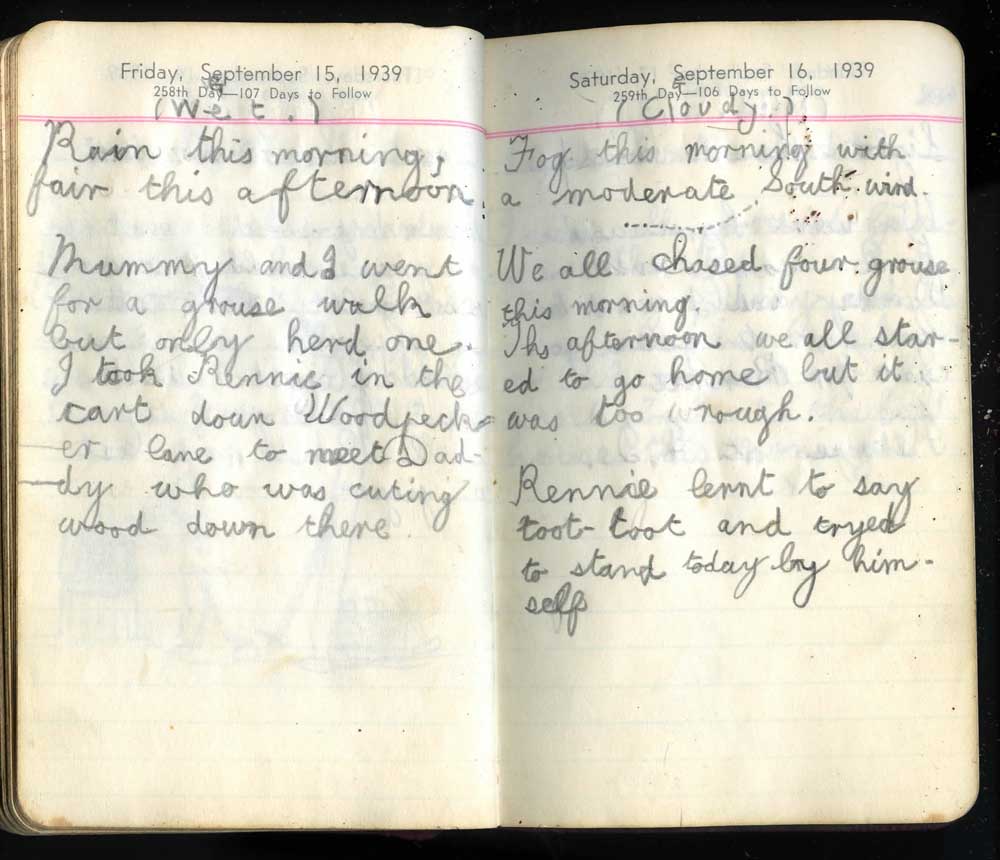 Friday, September 15, 1939
258th Day—107 Days to Follow
(Wet.)
Rain this morning,
fair this afternoon.
Mummy and I went
for a grouse walk
but only herd one.
I took Rennie in the
cart down Woodpeck-
er lane to meet Dad-
dy who was cuting
wood down there
Saturday, September 16, 1939
259th Day—106 Days to Follow
(Cloudy.)
Fog this morning with
a moderate South wind.
We all chased four grouse
this morning.
Ths afternoon we all star-
ed to go home but it
was too wrough.
Rennie lernt to say
toot-toot and tryed
to stand today by him-
self